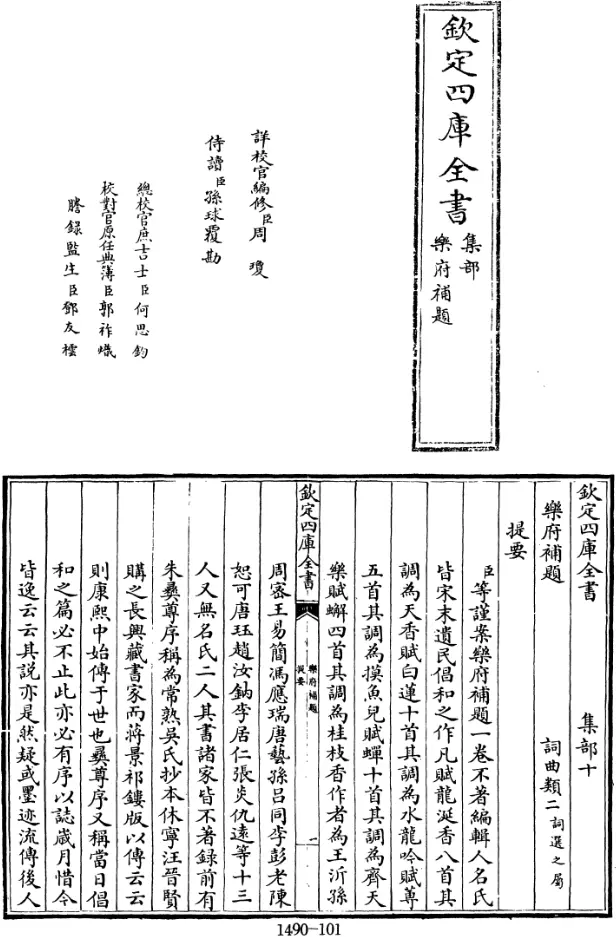 欽定四庫全書
集部
樂府補題
詳校官編修臣周瓊
侍讀臣孫球覆勘
總校官庶吉士臣何思鈞
校對官原任典簿臣郭祚熾
謄錄監生臣鄧友檽
欽定四庫全書 集部十
樂府補題 詞曲類二詞選之屬
提要
臣等謹案樂府補題一卷不著編輯人名氏
皆宋末遺民倡和之作凡賦龍涎香八首其
調為天香賦白蓮十首其調為水龍吟賦蓴
五首其調為摸魚兒賦蟬十首其調為齊天
樂賦蠏四首其調為桂枝香作者為王沂孫
欽定四庫全書
樂府補題
提要
一
周宻王易簡馮應瑞唐藝孫吕同李彭老陳
恕可唐珏趙汝鈉李居仁張炎仇逺等十三
人又無名氏二人其書諸家皆不著録前有
朱彝尊序稱為常熟吳氏抄本休寧汪晉賢
購之長興藏書家而蔣景祁鏤版以傳云云
則康熙中始傳于世也彝尊序又稱當日倡
和之篇必不止此亦必有序以誌歲月惜今
皆逸云云其説亦是然疑或墨迹流傳後人
1490-101